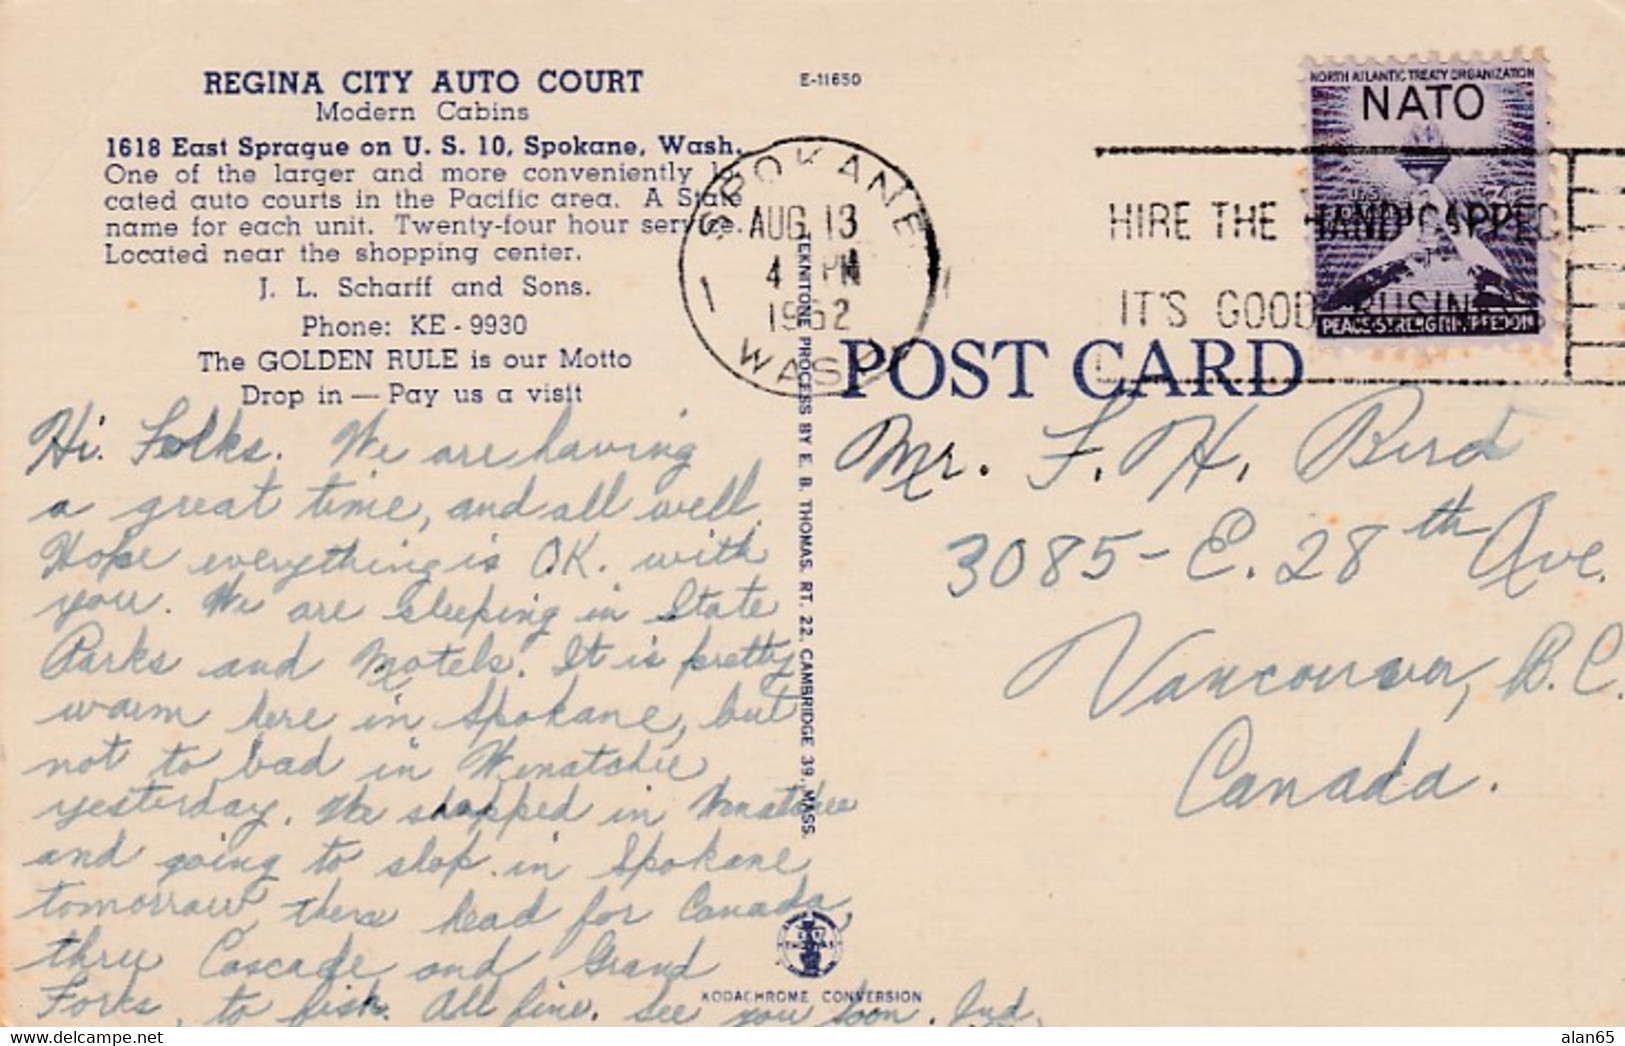 REGINA CITY AUTO COURT
Modern Cabins
1618 East Sprague on U. S. 10, Spokane, Wash.
One of the larger and more conveniently lo-
cated auto courts in the Pacific area. A State
name for each unit. Twenty-four hour service.
Located near the shopping center.
J. L. Scharff and Sons.
Phone: KE - 9930
The GOLDEN RULE is our Motto
Drop in — Pay us a visit
Hi. Folks. We are having
a great time, and all well.
Hope everything is O.K. with
you. We are sleeping in State
Parks and Motels. It is pretty
warm here in Spokane, but
not to bad in Wenatchie
yesterday. We shopped in Wenatchee
and going to slop in Spokane
tomorrow, there head for Canada,
thru Cascade and Grand
Forks, to fish. All fine. See you soon.
E-11650
TEKNITONE PROCESS BY E. B. THOMAS, RT. 22, CAMBRIDGE 39, MASS.
KODACHROME CONVERSION
SPOKANE
AUG 13
4 PM
1952
WASH
HIRE THE HANDICAPPED
IT'S GOOD BUSINESS
NORTH ATLANTIC TREATY ORGANIZATION
NATO
PEACE·STRENGTH·FREEDOM
POST CARD
Mr. F. H. Bird
3085- E. 28th Ave.
Vancouver, B.C.
Canada.
delcampe.net
alan65